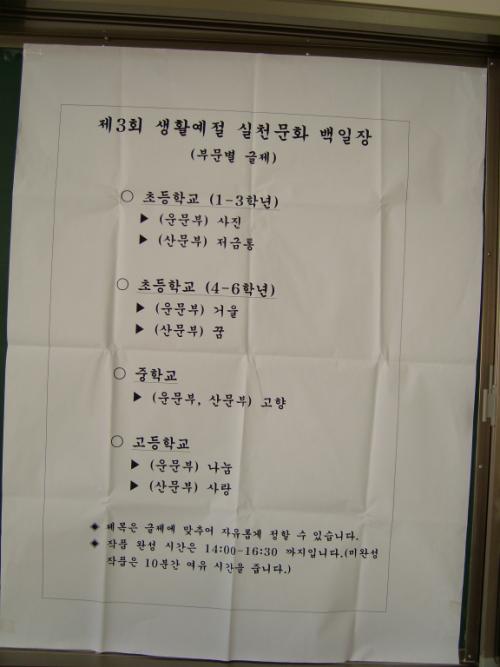 제3회 생활예절 실천문화 백일장
(부문별 글제)
○ 초등학교 (1-3학년)
▶ (운문부) 사진
▶ (산문부) 저금통
○ 초등학교 (4-6학년)
▶ (운문부) 거울
▶ (산문부) 꿈
○ 중학교
▶ (운문부, 산문부) 고향
○ 고등학교
▶ (운문부) 나눔
▶ (산문부) 사랑
◈ 제목은 글제에 맞추어 자유롭게 정할 수 있습니다.
◈ 작품 완성 시간은 14:00-16:30 까지입니다.(미완성
작품은 10분간 여유 시간을 줍니다.)